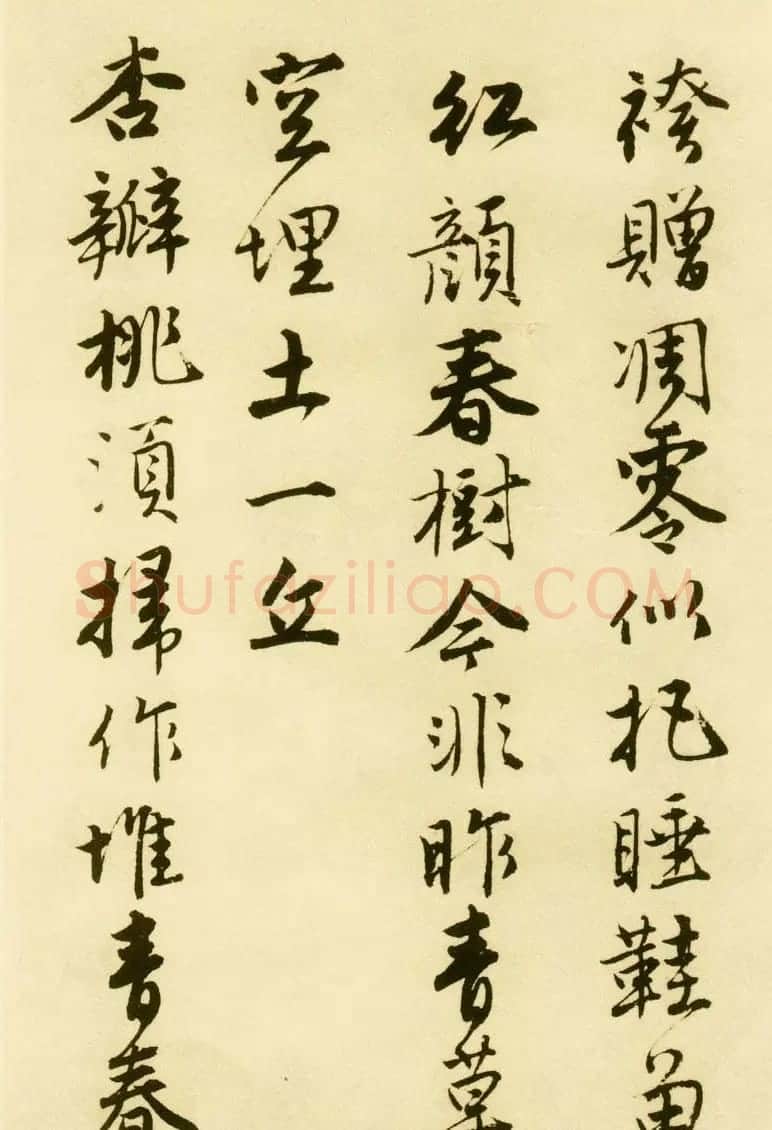 袴贈凋零似把睡鞋留
紅顏春樹今非昨青草
空埋土一丘
杏瓣桃須掃作堆青春
Shufaziliao.COM